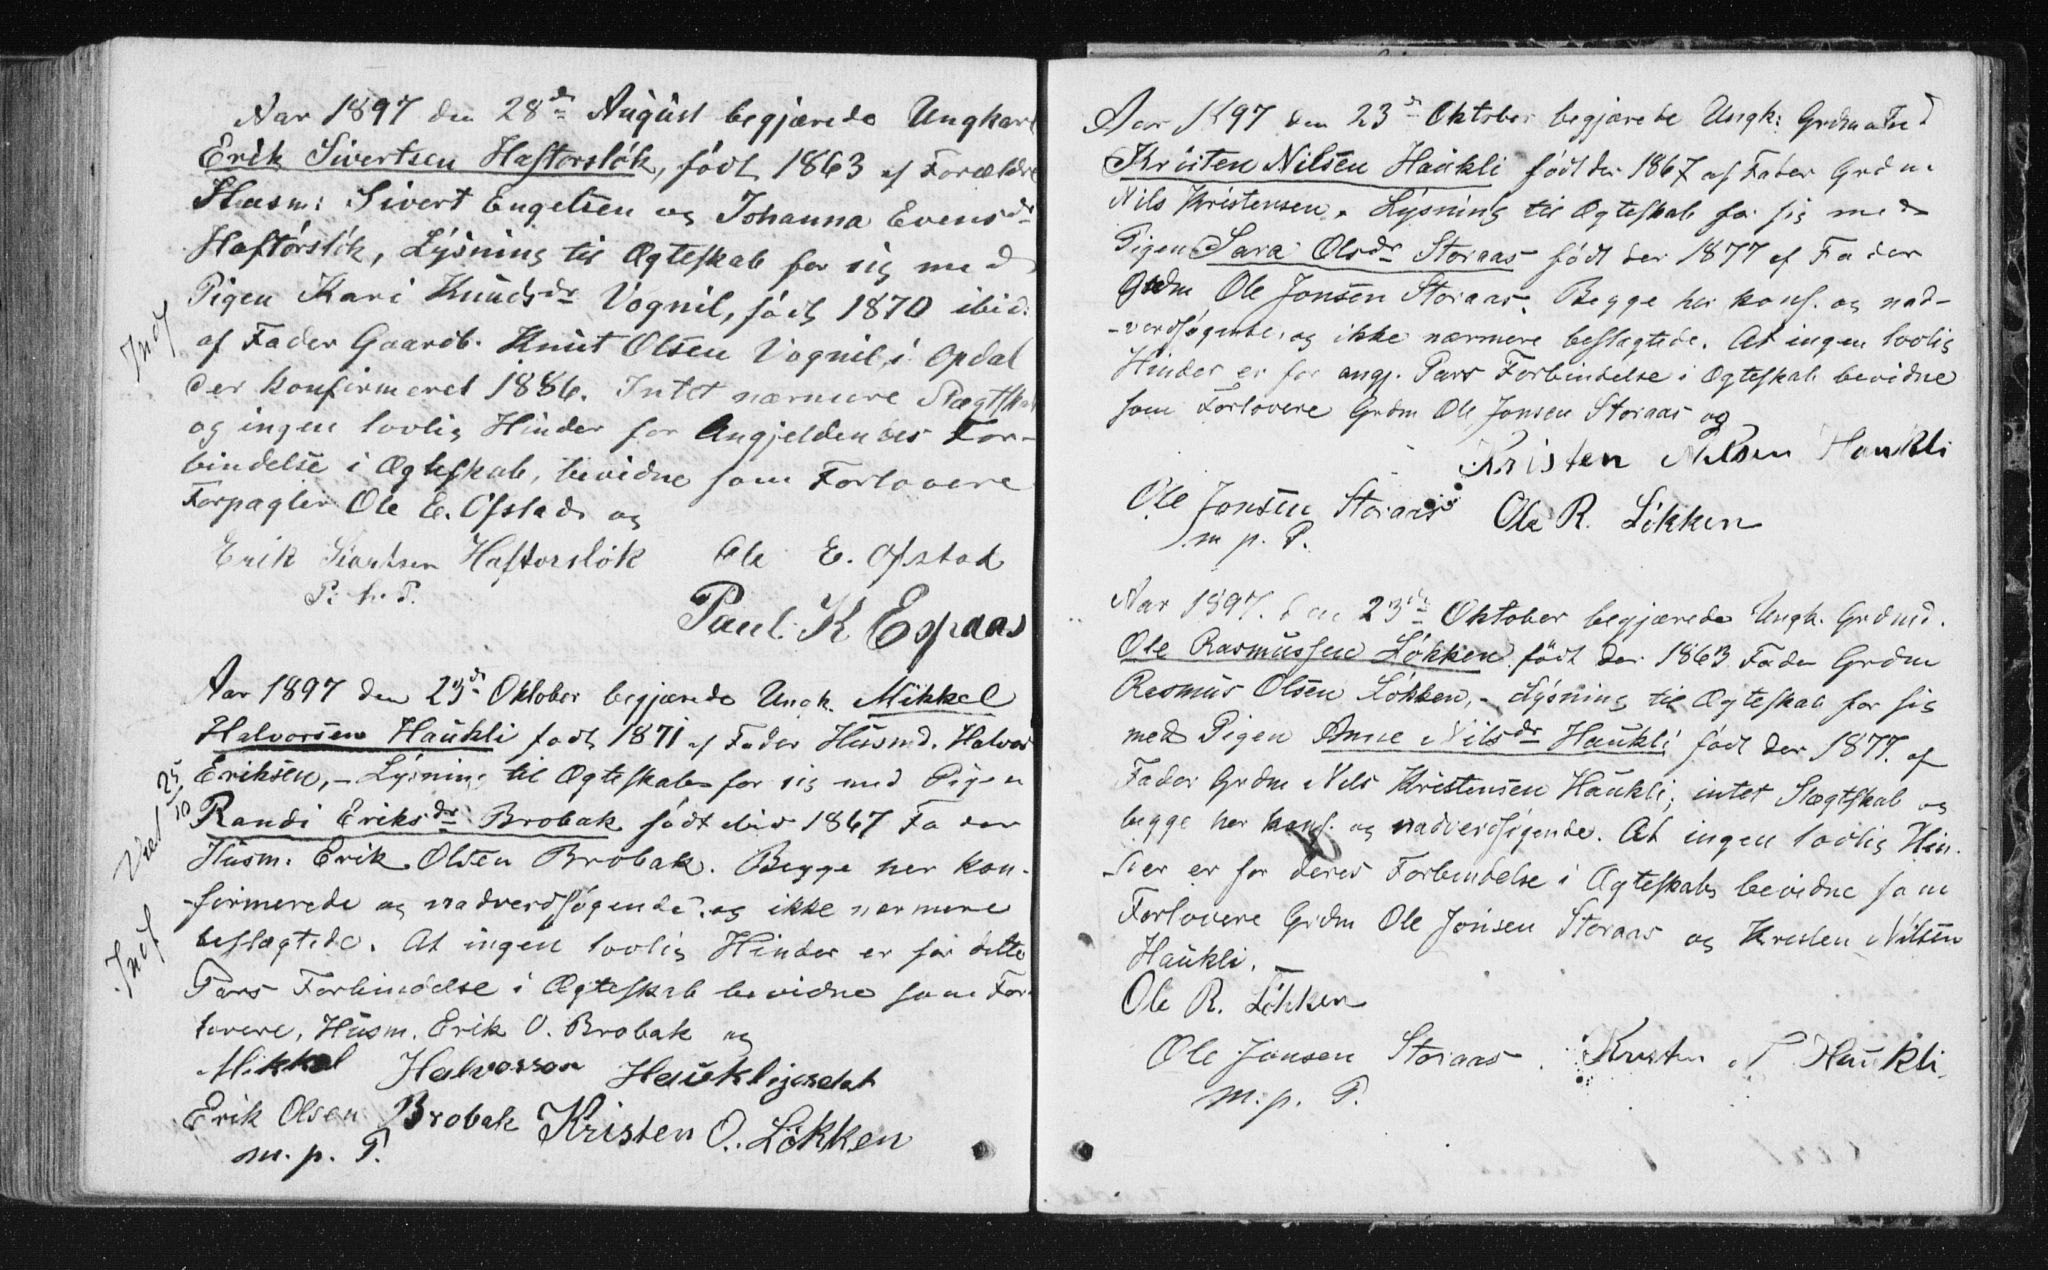 Aar 1897 den 28de August begjærede Ungkarl
Erik Sivertsen Haftorsløk, født 1863 af Forældre
Husm: Sivert Engelsen og Johanna Evensdr
Haftørsløk, Lysning til Ægteskab for sig med
Pigen Kari Knudsdr Vognil, født 1870 ibid:
af Fader Gaardb. Knut Olsen Vognil, i Opdal
der konfirmeret 1886. Intet nærmere Slægtskab
og ingen lovlig Hinder for Angjeldendes For-
bindelse i Ægteskab, bevidne som Forlovere
Forpagter Ole E. Ofstad og
Erik Sivertsen Haftorsløk Ole E. Ofstad
Paul. K Espaas
Aar 1897 den 23de Oktober begjærede Ungk. Mikkel
Halvorsen Haukli født 1871 af Fader Husmd. Halvor
Eriksen, - Lysning til Ægteskab for sig med Pigen
Randi Eriksdr Brobak født ibid 1867 Fader
Husm. Erik Olsen Brobak. Begge her kon-
firmerede og nadverdsøgende, og ikke nærmere
beslægtede. At ingen lovlig Hinder er for dette
Pars Forbindelse i Ægteskab bevidne som For-
lovere, Husm. Erik O. Brobak og
Mikkel Halvorsen
Erik Olsen Brobak Kristen O. Løkken
m. p. P.
Viet 25/10
Aar 1897 den 23de Oktober begjærede Ungk:
Kristen Nilsen Haukli født der 1867 af Fader Grdm
Nils Kristensen. Lysning til Ægteskab for sig med
Pigen Sara Olsdr Storaas født der 1877 af Fader
Grdm Ole Jonsen Storaas. Begge her konf. og nad-
-verdsøgende, og ikke nærmere beslægtede. At ingen lovlig
Hinder er for angj. Pars Forbindelse i Ægteskab bevidne
som Forlovere Grdm Ole Jonsen Storaas og
Kristen Nilsen Haukli
Ole Jonsen Storaas Ole R. Løkken
m p. P.
Aar 1897. den 23de Oktober begjærede Ungk. Grdmd.
Ole Rasmussen Løkken født der 1863 Fader Grdm
Rasmus Olsen Løkken, - Lysning til Ægteskab for sig
med Pigen Anne Nilsdr Haukli født der 1877. af
Fader Grdm Nils Kristensen Haukli; intet Slægtskab og
begge her konf. og nadverdsøgende. At ingen lovlig Hin-
der er for deres Forbindelse i Ægteskab bevidne som
Forlovere Grdm Ole Jonsen Storaas og Kristen Nilsen
Haukli.
Ole R. Løkken
Ole Jonsen Storaas Kristen N Haukli
m. p. P.